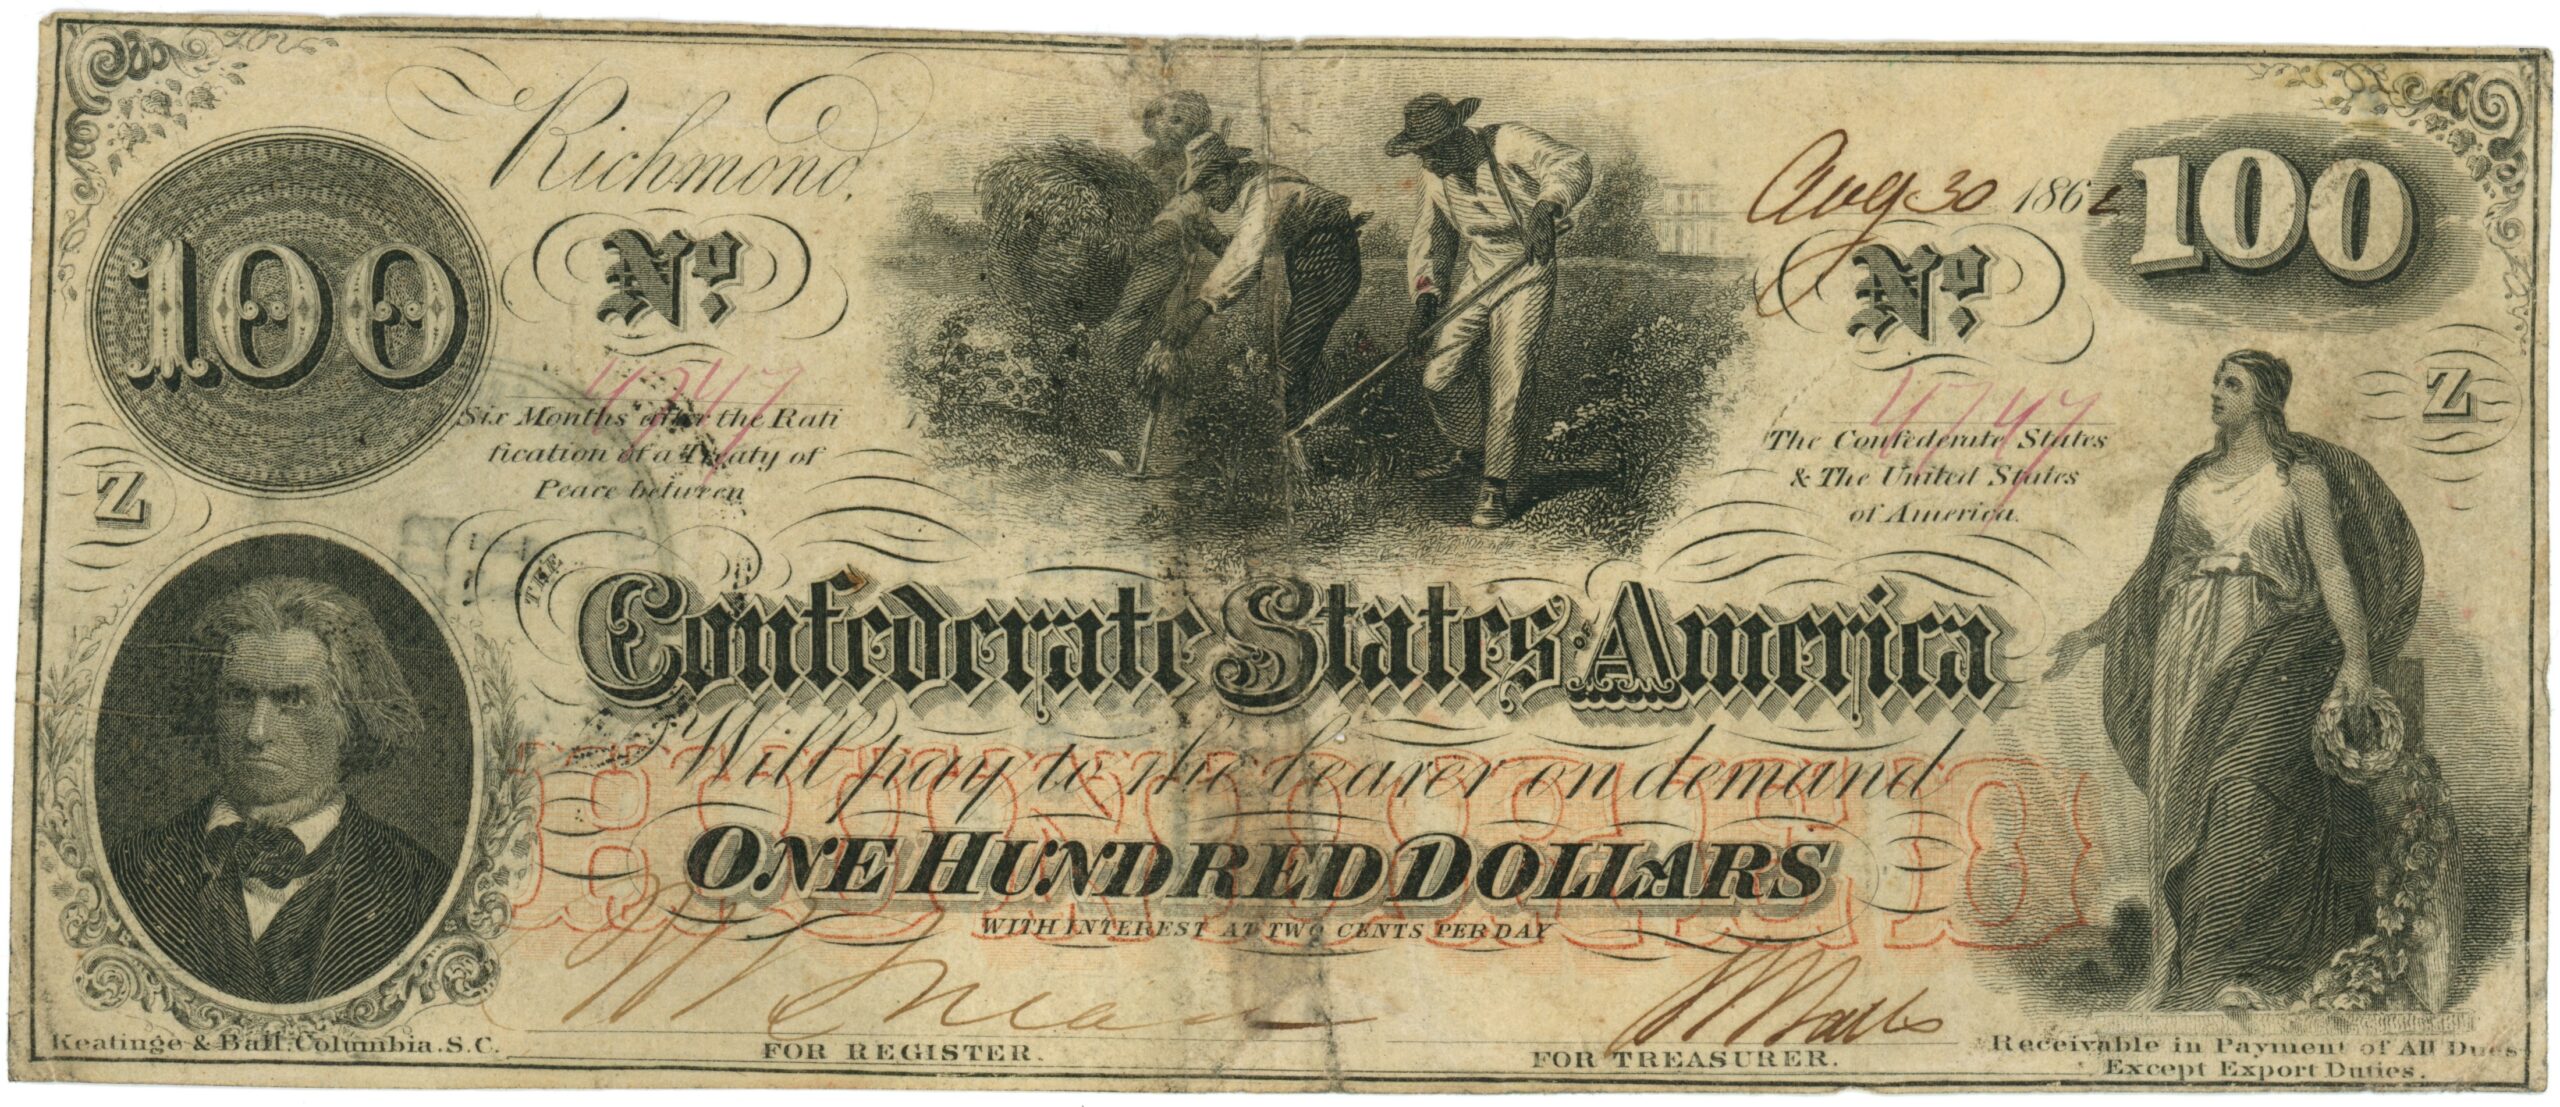 Richmond,
Aug 30 1862
100
No.
No.
100
4747
4747
Six Months after the Rati
fication of a Treaty of
Peace between
The Confederate States
& The United States
of America.
Z
Z
THE
Confederate States OF America
Will pay to the bearer on demand
HUNDRED
ONE HUNDRED DOLLARS
WITH INTEREST AT TWO CENTS PER DAY
Keatinge & Ball, Columbia. S.C.
FOR REGISTER.
FOR TREASURER.
Receivable in Payment of All Dues
Except Export Duties.